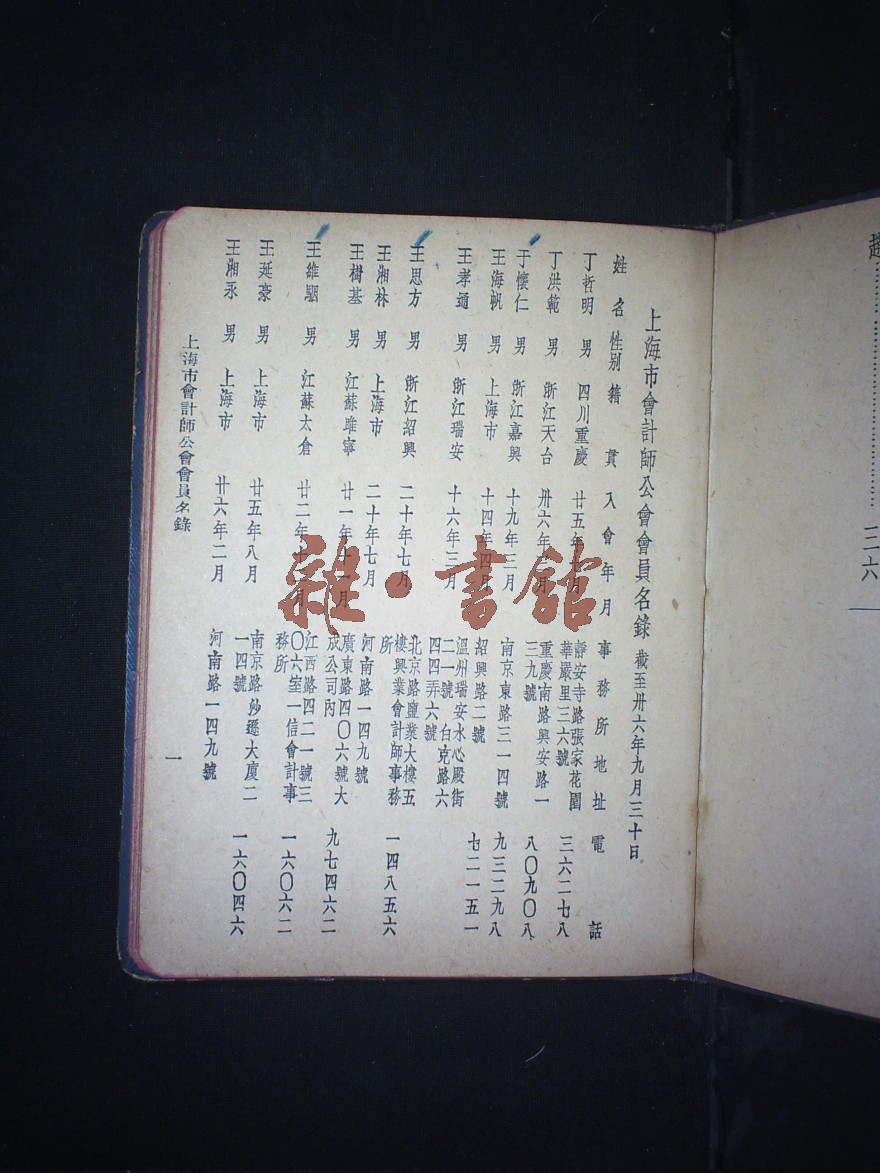 上海市會計師公會會員名錄 截至卅六年九月三十日
姓名 性别 籍貫 入會年月 事務所地址 電話
丁哲明 男 四川重慶 廿五年 月 靜安寺路張家花園華嚴里三六號 三六二七八
丁洪範 男 浙江天台 卅六年 月 重慶南路興安路一三九號 八〇九〇八
于懷仁 男 浙江嘉興 十九年三月 南京東路三一四號 九三二九八
王海帆 男 上海市 十四年四月 紹興路二號 七二一五一
王孝通 男 浙江瑞安 十六年三月 溫州瑞安水心殿街二一號 白克路六四四弄六號
王思方 男 浙江紹興 二十年七月 北京路鹽業大樓五樓興業會計師事務所 一四八五六
王湘林 男 上海市 二十年七月 河南路一四九號
王樹基 男 江蘇睢寧 廿一年十一月 廣東路四〇六號大成公司內 九七四六二
王維駰 男 江蘇太倉 廿二年十 月 江西路四二一號三〇六室一信會計事務所 一六〇六二
王延豪 男 上海市 廿五年八月 南京路 遜大廈二一四號 一六〇四六
王湘永 男 上海市 廿六年二月 河南路一四九號
上海市會計師公會會員名錄
一
三六
雜·書館